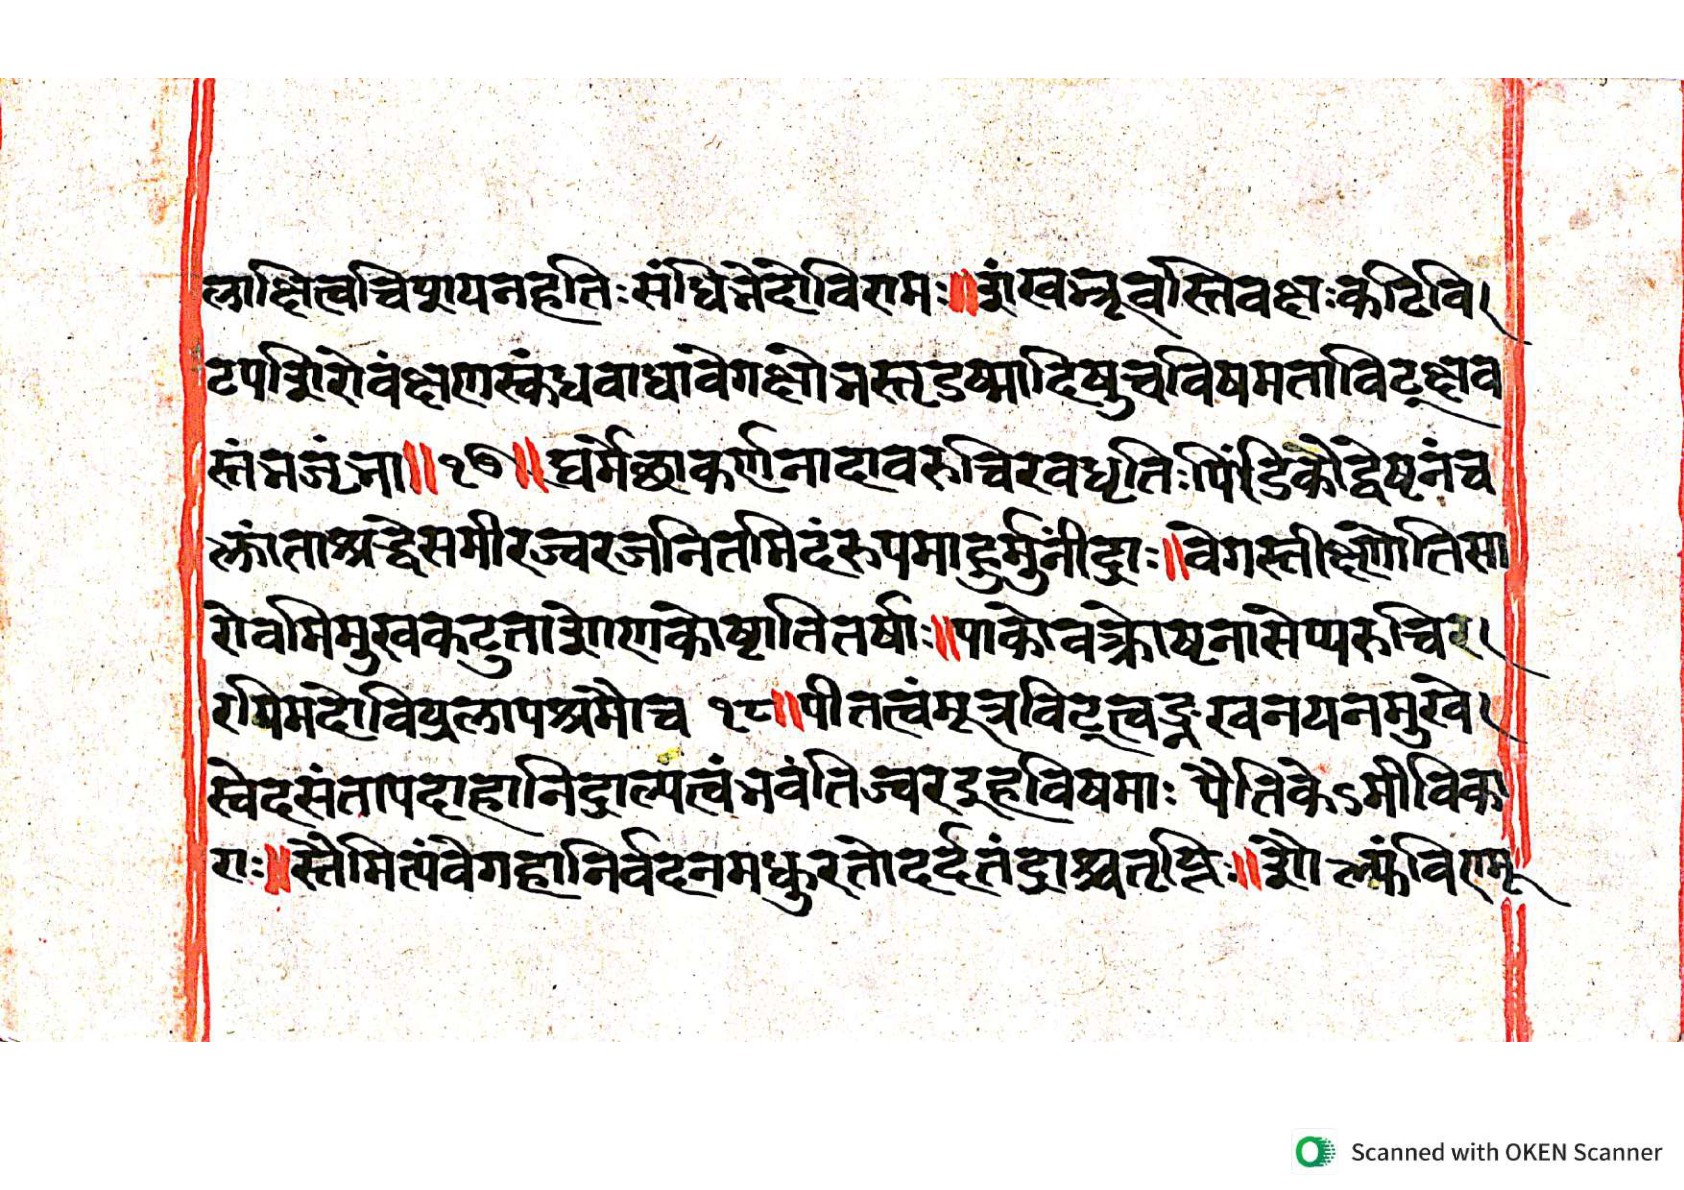 लाक्षित्वचिपुायनहतिःसंधिभेदोविरामः॥शंखन्मूर्वस्तिवक्षःकटिवि।
टपशिरोवंक्षणस्कंधवाधावेगक्षोभस्तृडष्मादिषुचविषमताविट्क्षव
स्तंभजृंभा॥१७॥घर्मेछाकर्णनादावरुचिरवधृतिःपिंडिकोद्वेष्टनंच
क्लांताश्रद्देसमीरज्वरजनितमिदंरूपमाहुर्मुनींद्राः॥वेगस्तीक्ष्णोतिसा
रोवमिमुखकटुताशोणकोष्णतितर्षाः॥पाकोवक्रोष्टनासेप्यरुचिर।
रमिमदोविप्रलापश्रमौच १८॥पीतत्वंमूत्रविट्त्वङ्नखनयनमुखे।
स्वेदसंतापदाहानिद्राल्पत्वंभवंतिज्वरइहविषमाः पैतिकेऽमीविका
राः॥स्तैमित्यंवेगहानिर्वदनमधुरतोदर्दतंद्राश्चतृप्तिः॥शौल्क्यंविण्मू
Scanned with OKEN Scanner